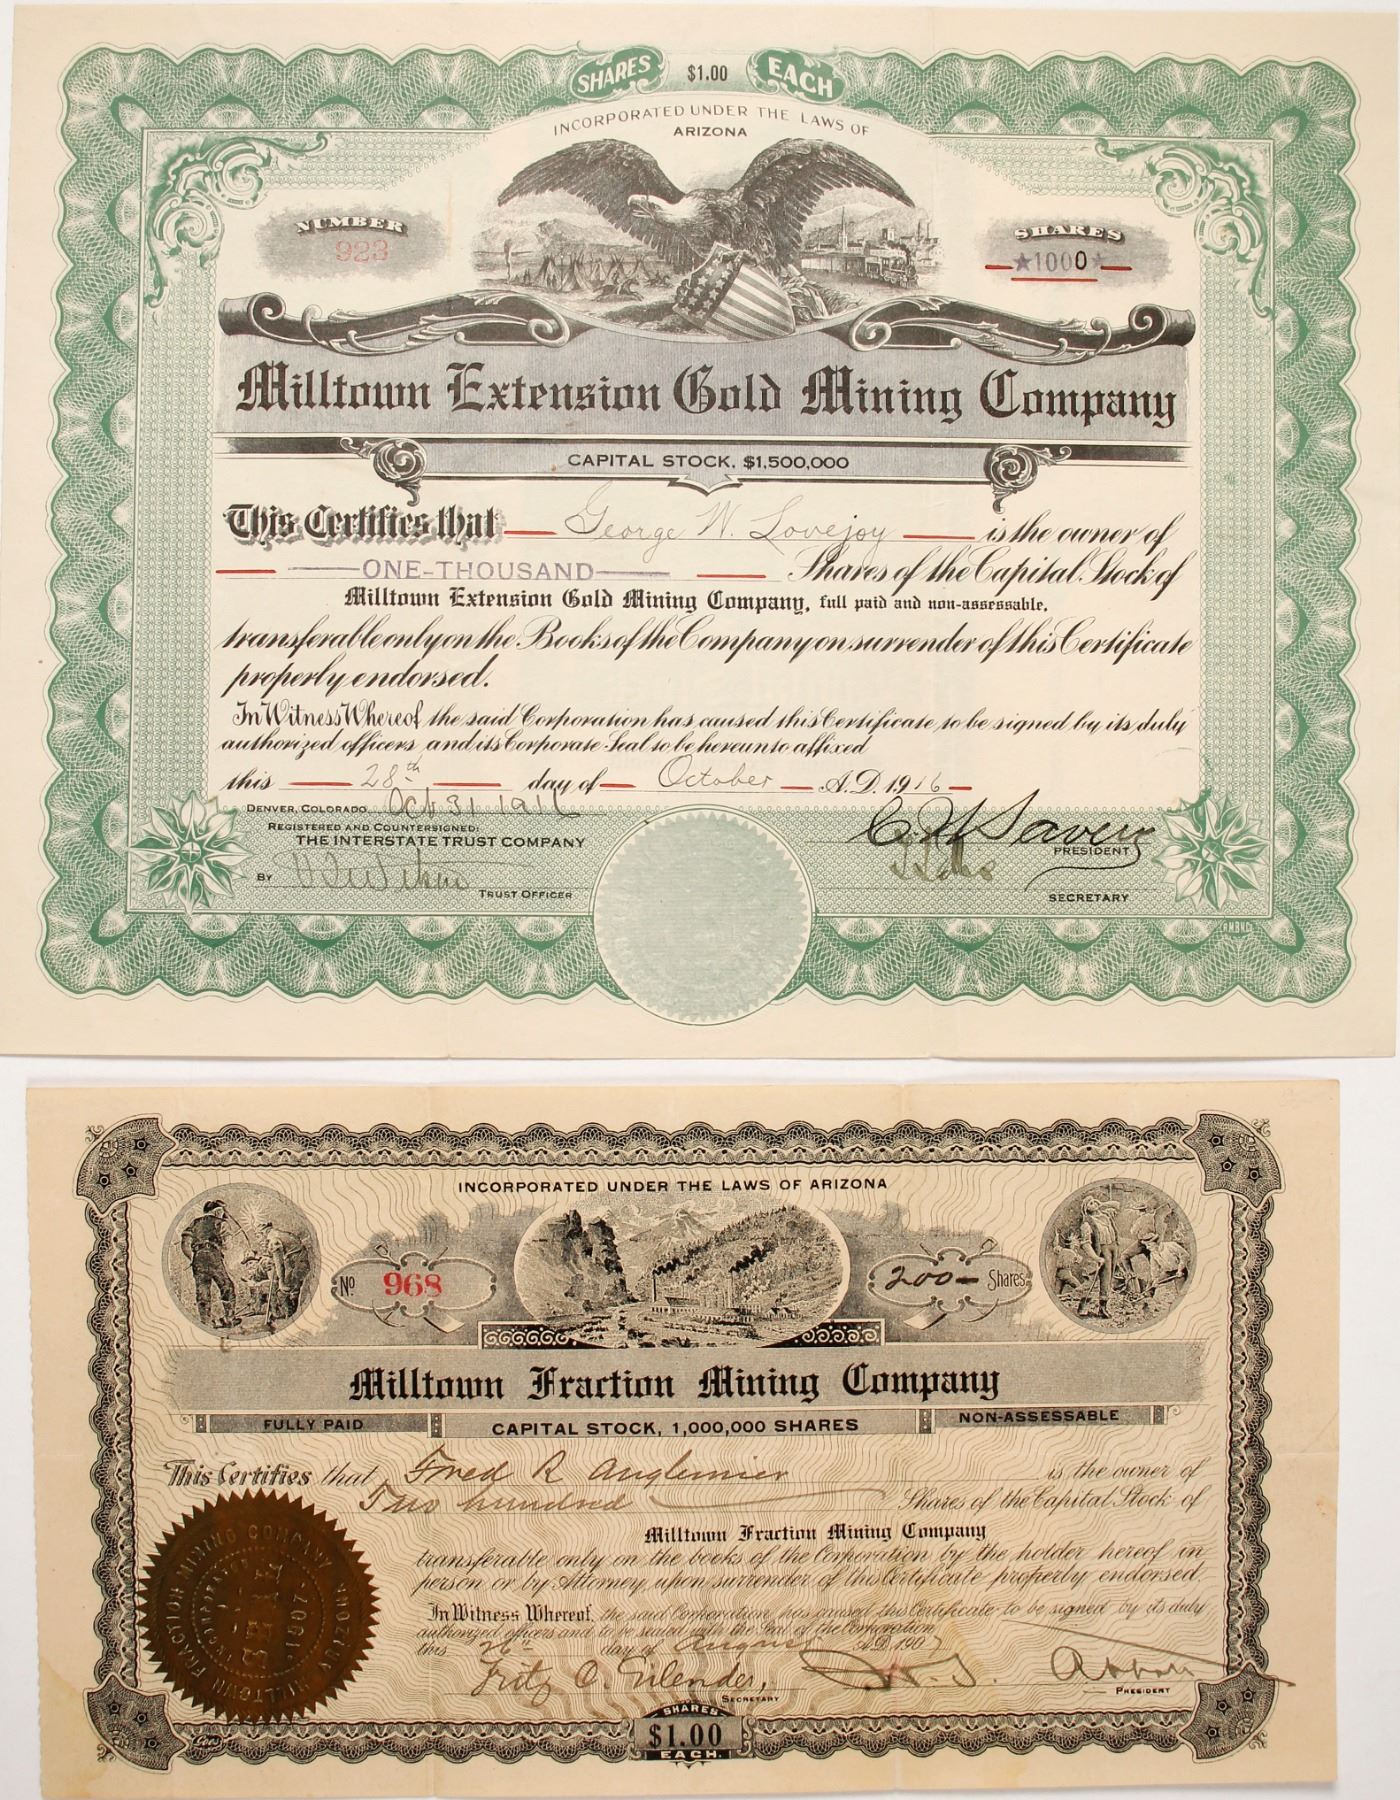 SHARES $1.00 EACH
INCORPORATED UNDER THE LAWS OF
ARIZONA
NUMBER
923
SHARES
★1000★
Milltown Extension Gold Mining Company
CAPITAL STOCK, $1,500,000
This Certifies that George W. Lovejoy is the owner of
ONE-THOUSAND Shares of the Capital Stock of
Milltown Extension Gold Mining Company, full paid and non-assessable,
transferable only on the Books of the Company on surrender of this Certificate
properly endorsed.
In Witness Whereof the said Corporation has caused this Certificate to be signed by its duly
authorized officers and its Corporate Seal to be hereunto affixed
this 28th day of October A.D. 1916
DENVER, COLORADO Oct 31 1916
REGISTERED AND COUNTERSIGNED:
THE INTERSTATE TRUST COMPANY
BY
TRUST OFFICER
PRESIDENT
SECRETARY
INCORPORATED UNDER THE LAWS OF ARIZONA
No 968
200 Shares
Milltown Fraction Mining Company
FULLY PAID
CAPITAL STOCK, 1,000,000 SHARES
NON-ASSESSABLE
This Certifies that Fred R is the owner of
Two hundred Shares of the Capital Stock of
Milltown Fraction Mining Company
transferable only on the books of the Corporation by the holder hereof in
person or by Attorney upon surrender of this Certificate properly endorsed.
In Witness Whereof, the said Corporation has caused this Certificate to be signed by its duly
authorized officers and to be sealed with the Seal of the Corporation
this 26th day of August A.D. 1907
Fritz C.
SECRETARY
Abbott
PRESIDENT
MILLTOWN FRACTION MINING COMPANY ARIZONA
1907
SHARES
$1.00
EACH